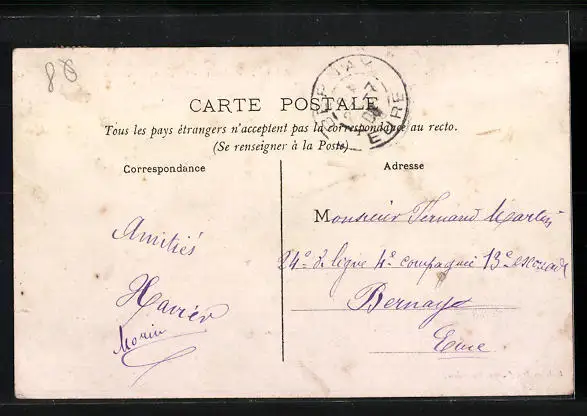 80
BERNAY
EURE
CARTE POSTALE
Tous les pays étrangers n'acceptent pas la correspondance au recto.
(Se renseigner à la Poste)
Correspondance
Adresse
Amitiés
Xavier
Morin
Monsieur Fernand Martin
24e de ligne 4e compagnie 13e escouade
Bernay
Eure